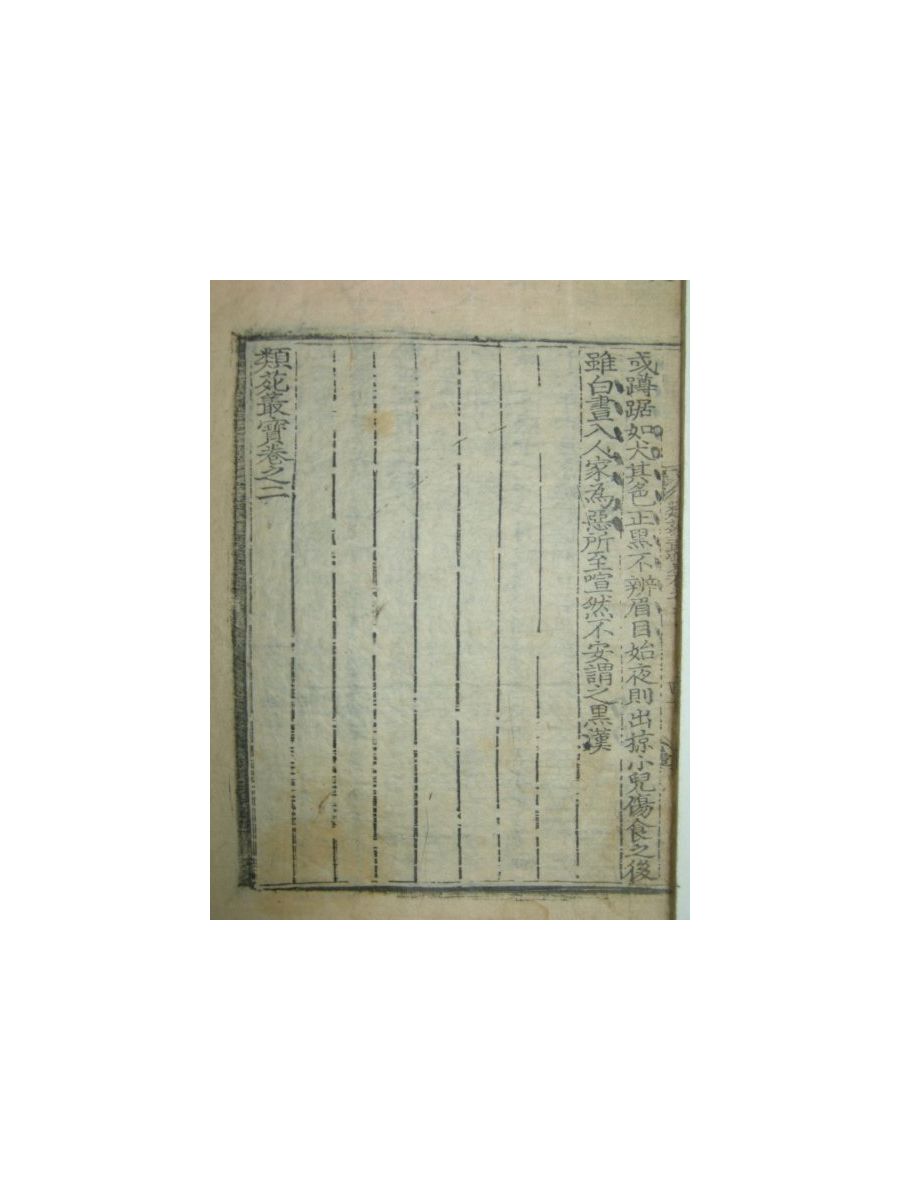 或蹲踞如犬其色正黑不辨眉目始夜則出掠小兒傷食之後
雖白晝入人家為惡所至喧然不安謂之黑漢
類苑叢寶卷之二